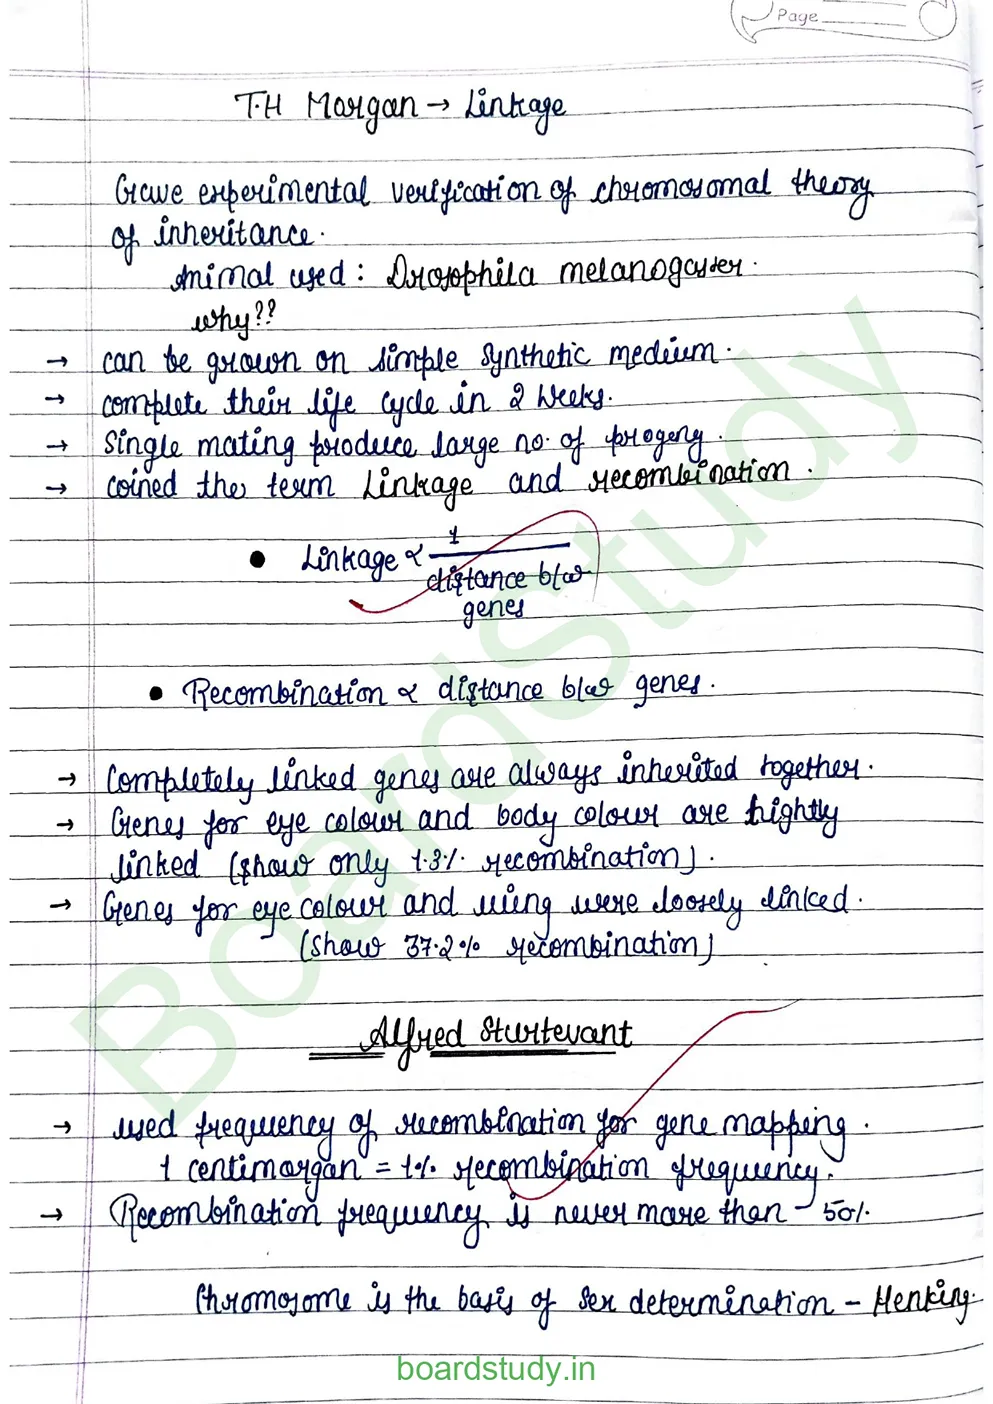 Page
T.H Morgan → Linkage
Gave experimental verification of chromosomal theory
of inheritance.
Animal used : Drosophila melanogaster.
why??
→ can be grown on simple synthetic medium.
→ complete their life cycle in 2 weeks.
→ Single mating produce large no. of progeny.
→ coined the term Linkage and recombination.
• Linkage ∝ 1
distance b/w
genes
• Recombination ∝ distance b/w genes.
→ Completely linked genes are always inherited together.
→ Genes for eye colour and body colour are highly
linked (show only 1.3%. recombination).
→ Genes for eye colour and wing were loosely linked.
(show 37.2% recombination)
Alfred Sturtevant
→ used frequency of recombination for gene mapping.
1 centimorgan = 1% recombination frequency.
→ Recombination frequency is never more than - 50%.
Chromosome is the basis of sex determination - Henking.
BoardStudy
boardstudy.in